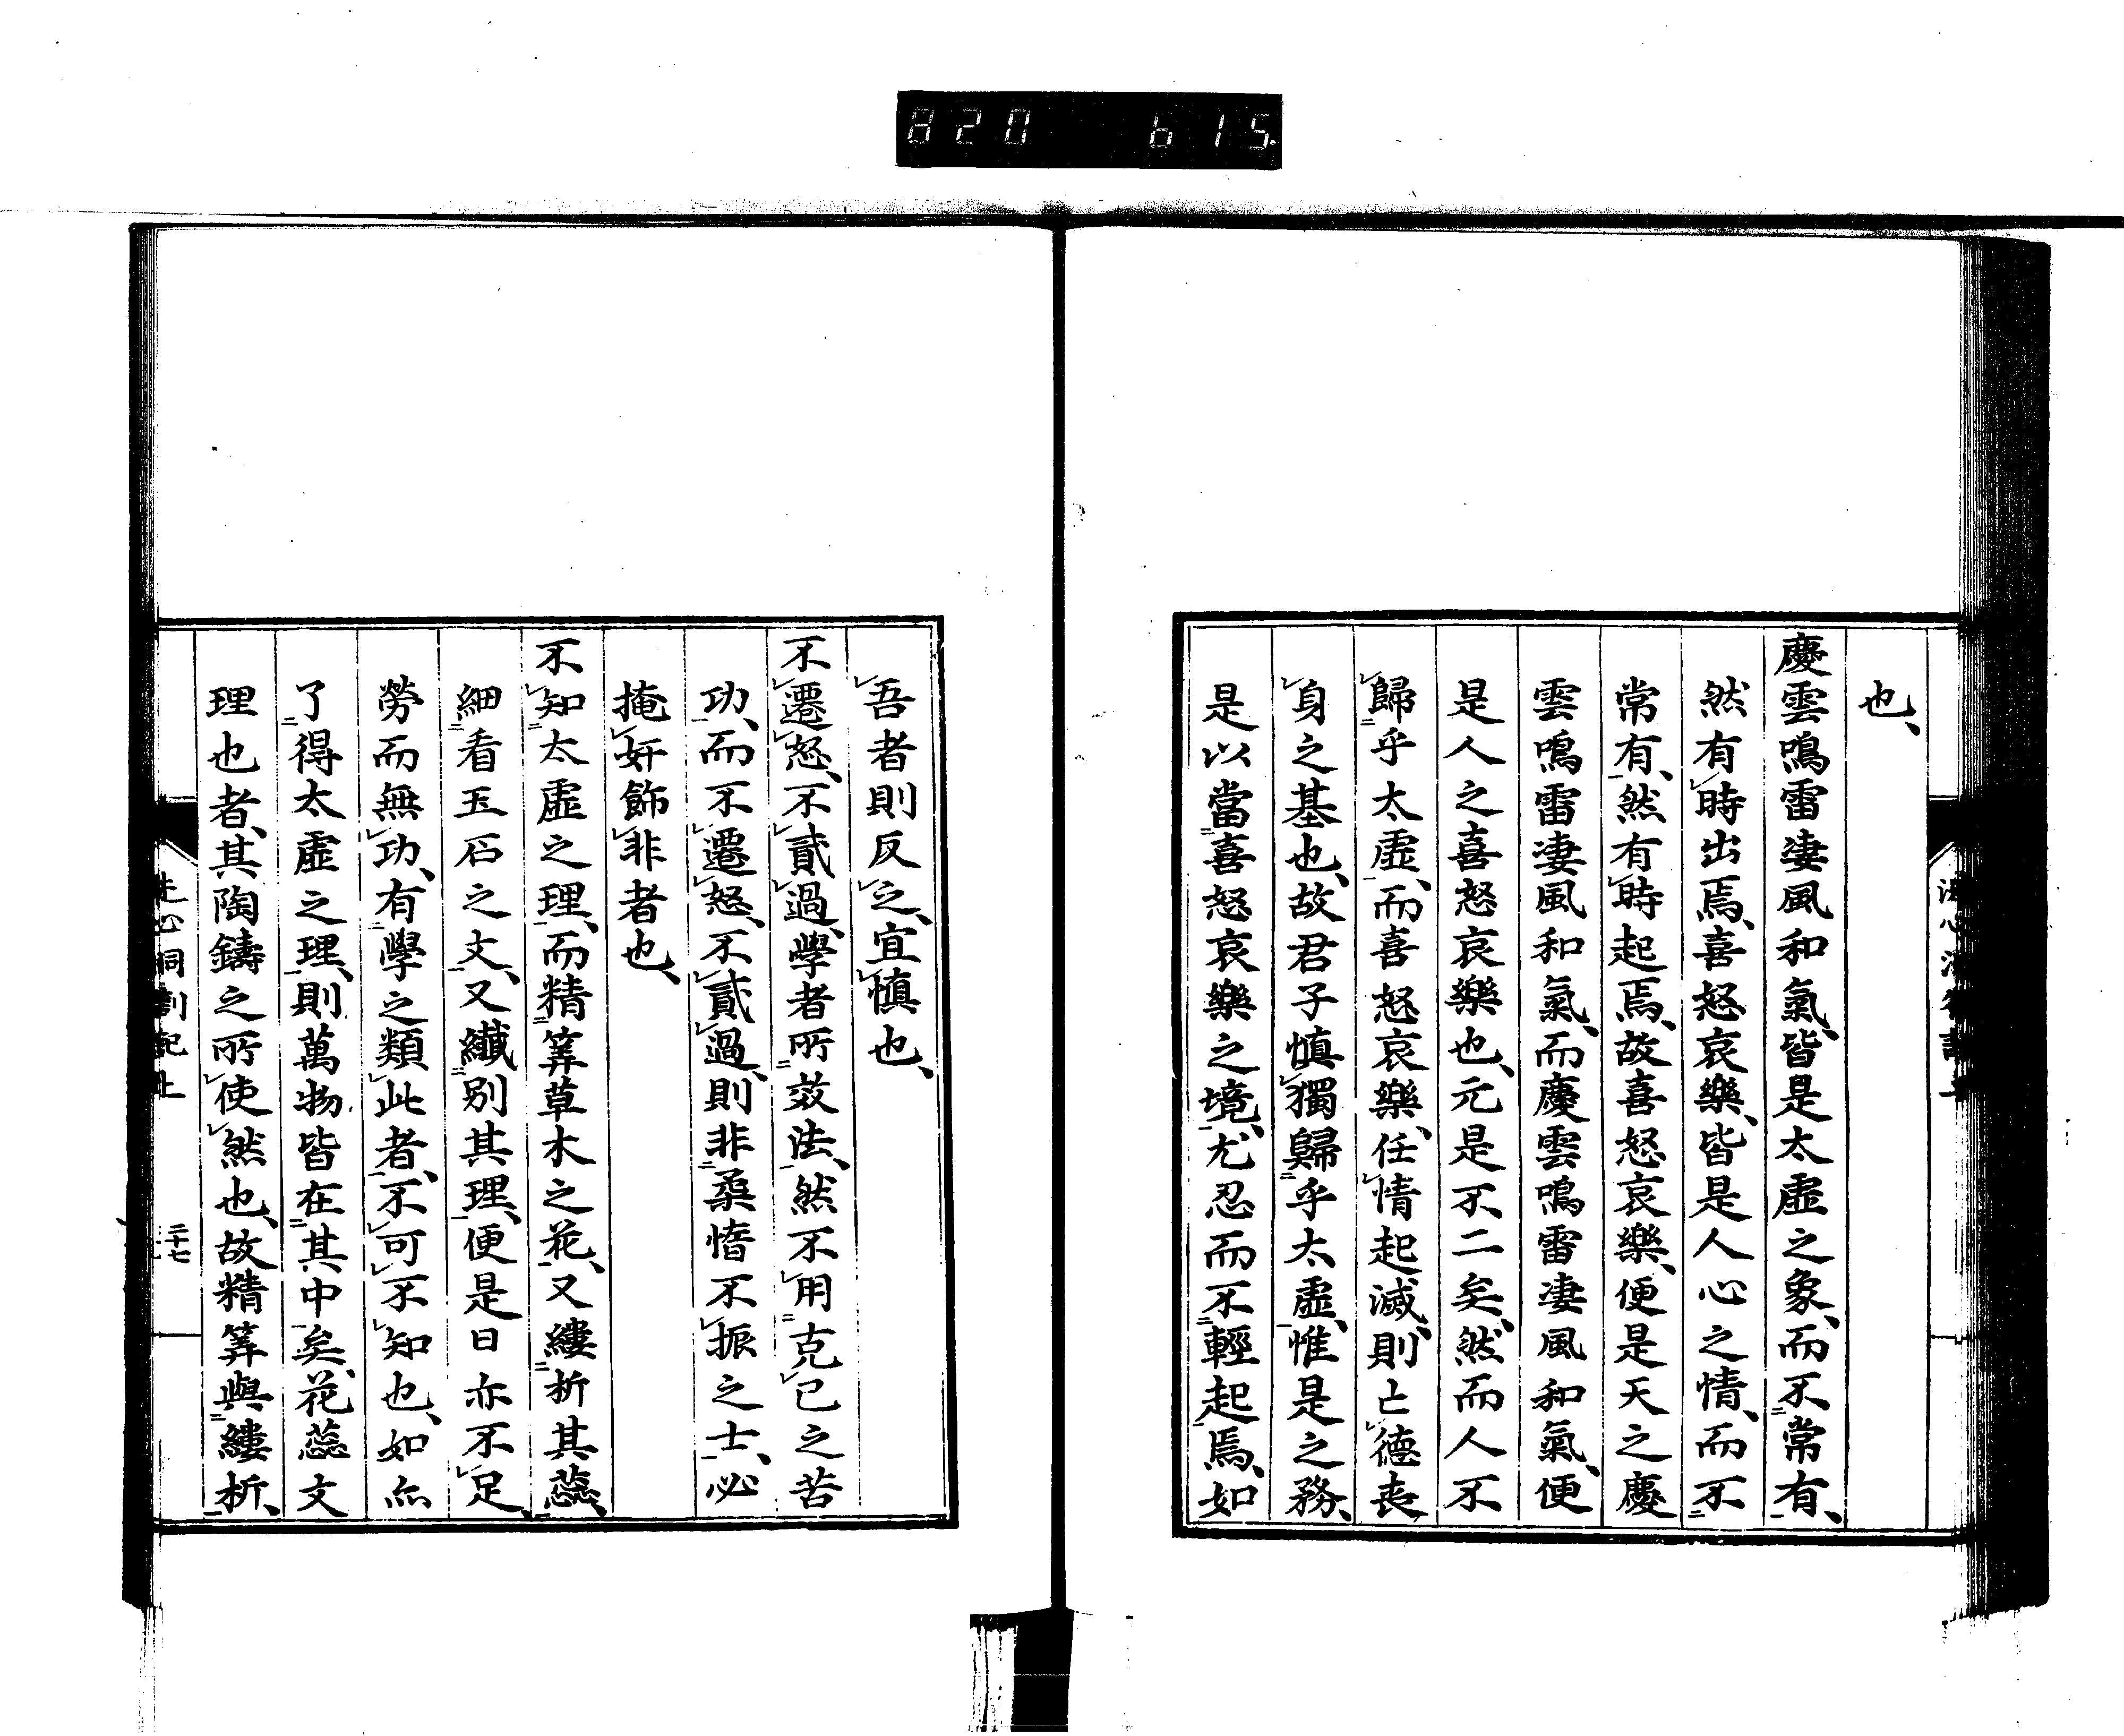 820 615
也、
慶雲鳴雷淒風和氣、皆是太虛之象、而不常有、
然有時出焉、喜怒哀樂、皆是人心之情、而不
常有、然有時起焉、故喜怒哀樂、便是天之慶
雲鳴雷淒風和氣、而慶雲鳴雷淒風和氣、便
是人之喜怒哀樂也、元是不二矣、然而人不
歸乎太虛、而喜怒哀樂、任情起滅、則亡德喪
身之基也、故君子慎獨歸乎太虛、惟是之務、
是以當喜怒哀樂之境、尤忍而不輕起焉、如
吾者則反之、宜慎也、
不遷怒、不貳過、學者所效法、然不用克己之苦
功、而不遷怒、不貳過、則非柔惰不振之士、必
掩奸飾非者也、
不知太虛之理、而精筭草木之花、又縷析其蕊、
細看玉石之文、又纖別其理、便是日亦不足、
勞而無功、有學之類此者、不可不知也、如亦
了得太虛之理、則萬物皆在其中矣、花蕊文
理也者、其陶鑄之所使然也、故精筭與縷析、
洞劄記上
二十七